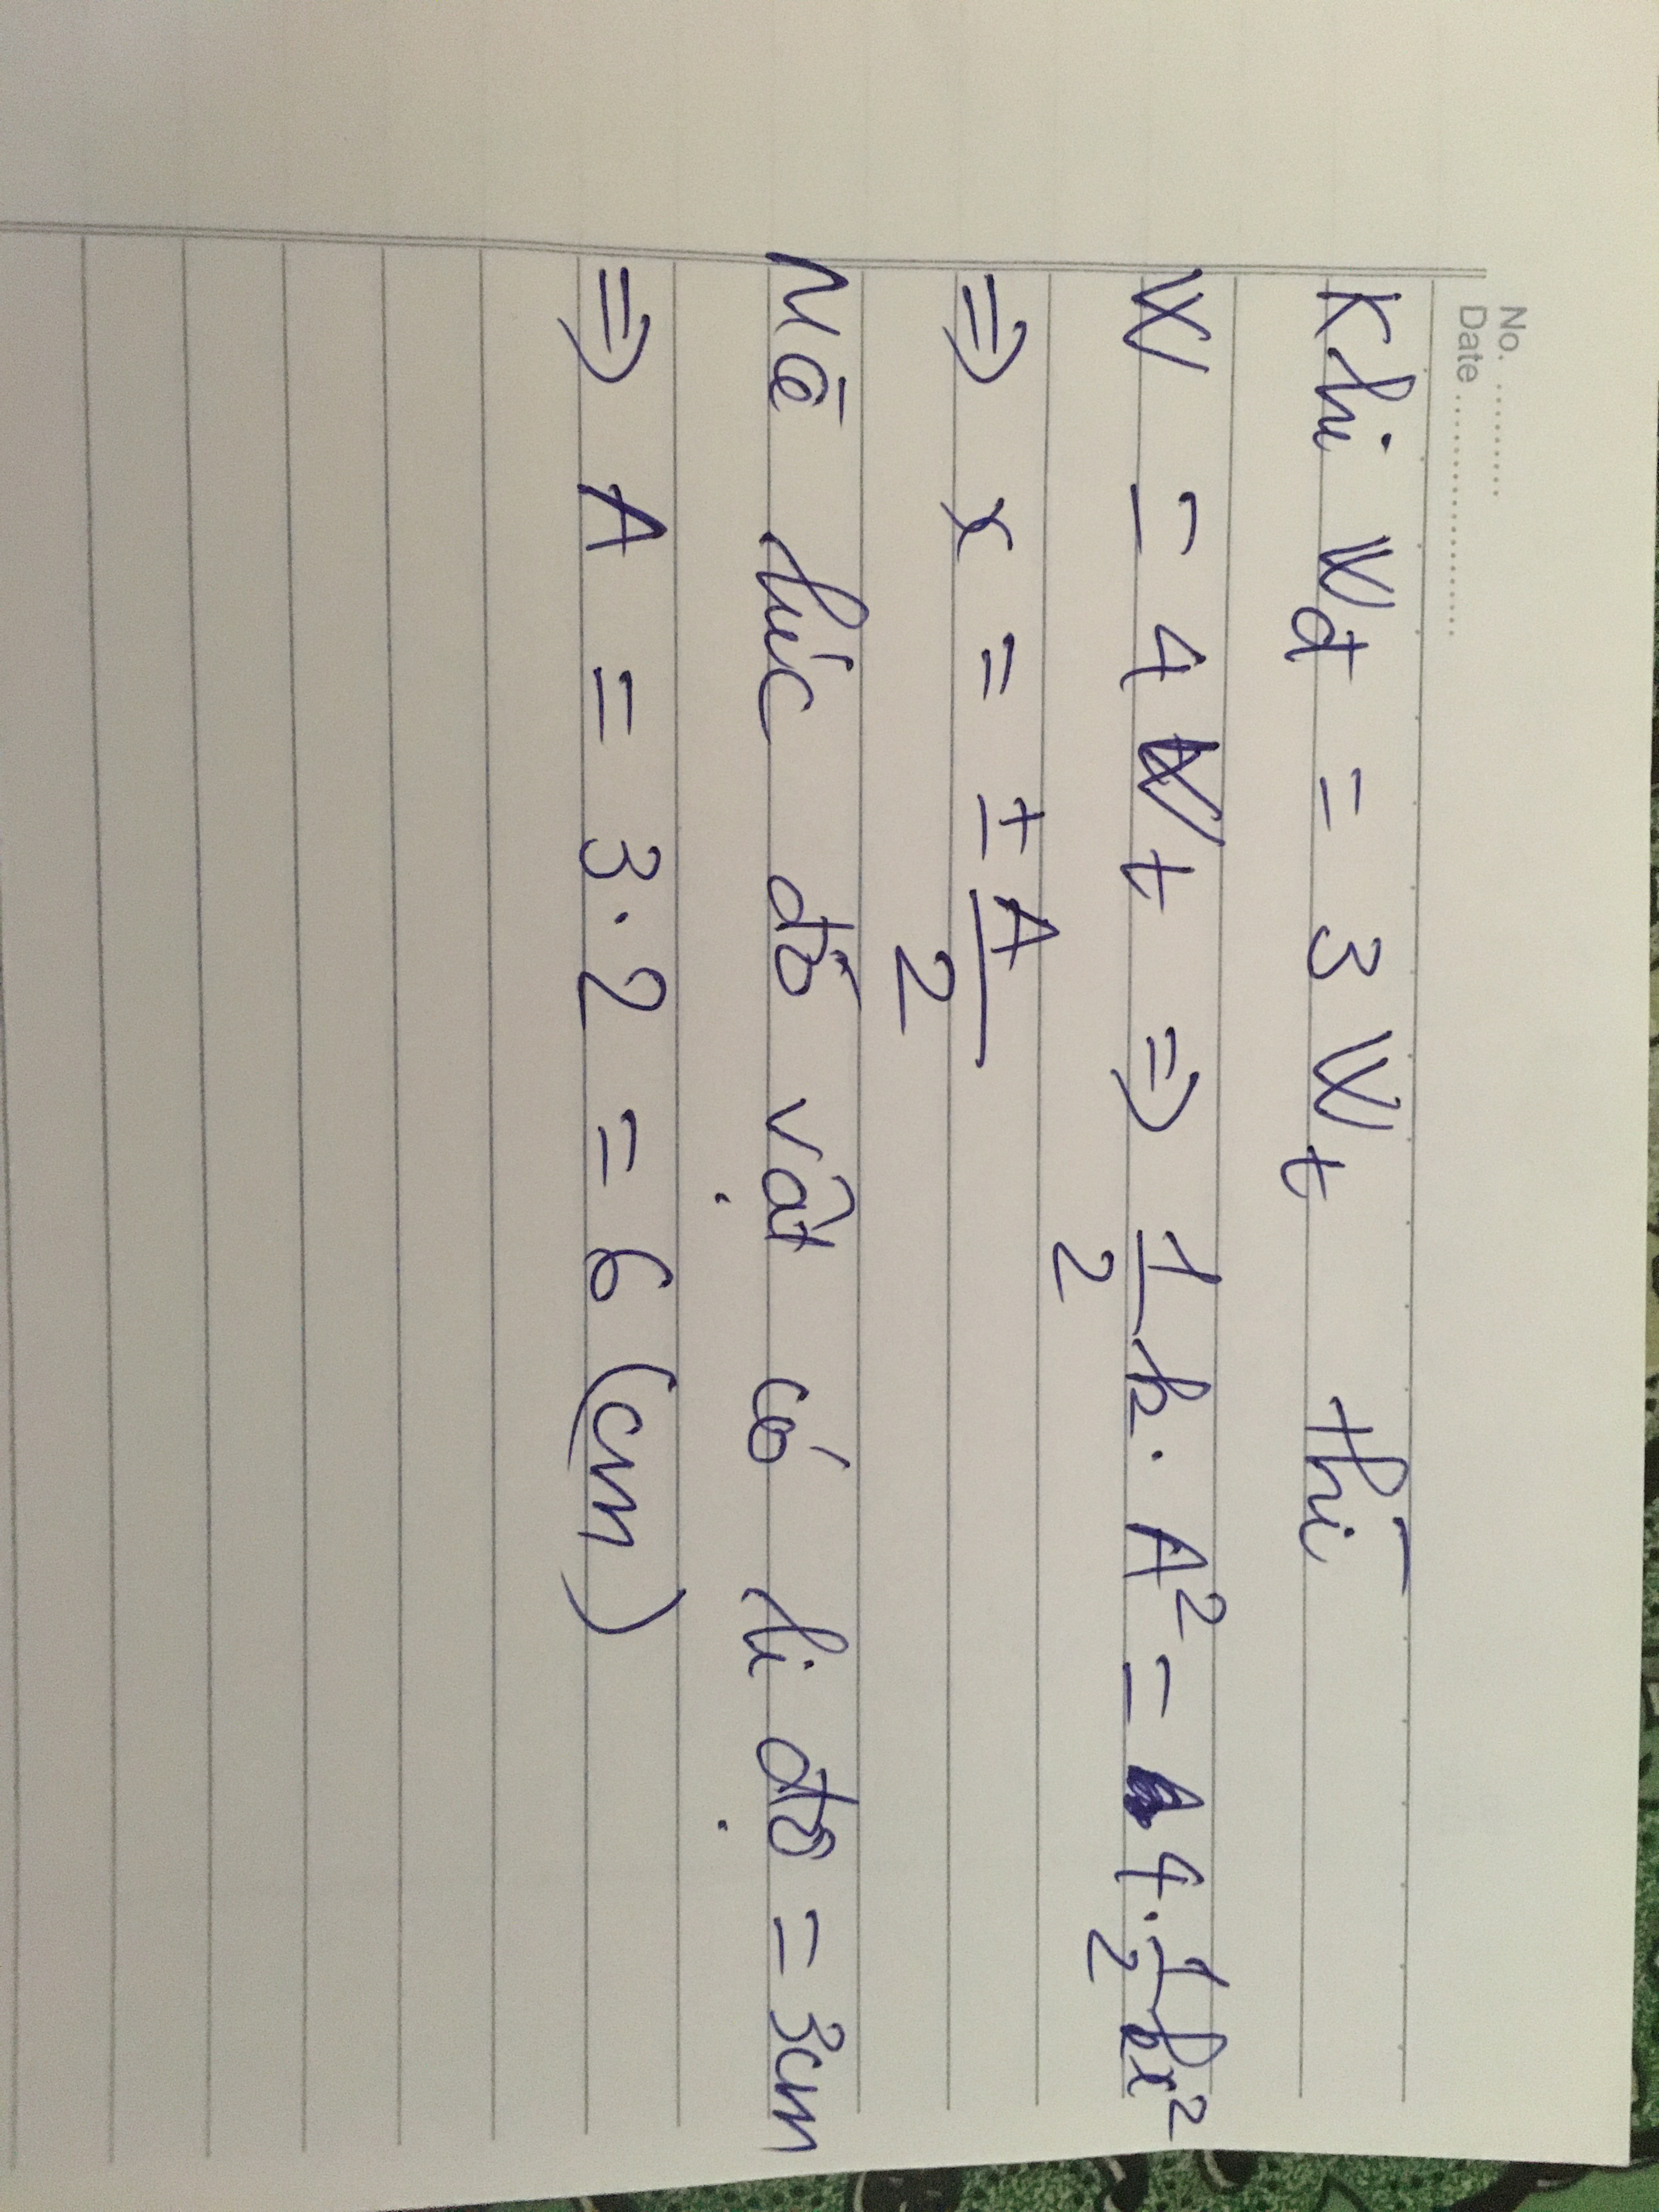 No. ..........
Date ......................
Khi Wđ = 3 Wt thì
W = 4 Wt => 1/2 k. A² = 4. 1/2 kx²
=> x = ± A/2
Mà lúc đó vật có li độ = 3cm
=> A = 3.2 = 6 (cm)